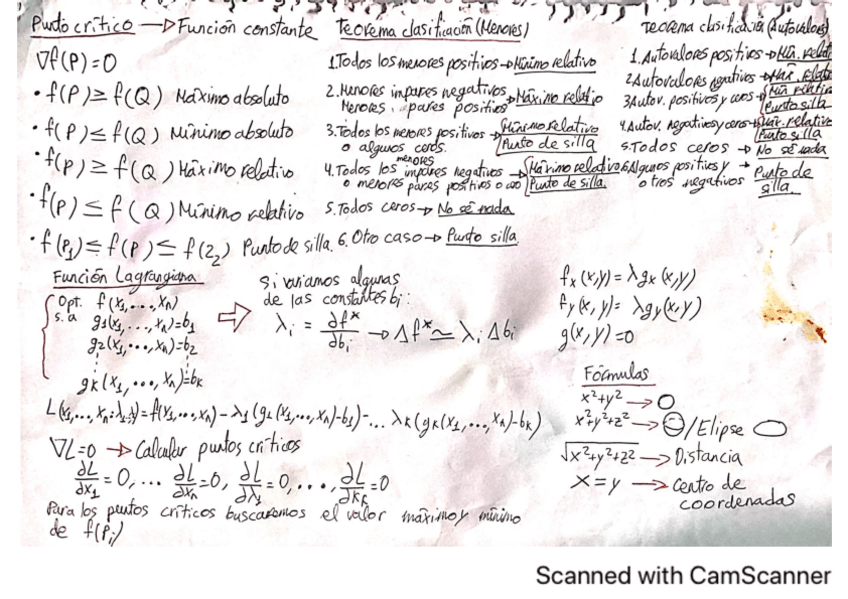 Punto crítico → Función constante
∇f(P)=0
• f(P) ≥ f(Q) Máximo absoluto
• f(P) ≤ f(Q) Mínimo absoluto
• f(P) ≥ f(Q) Máximo relativo
• f(P) ≤ f(Q) Mínimo relativo
• f(P₁) ≤ f(P) ≤ f(2₂) Punto de silla.
Teorema clasificación (Menores)
1. Todos los menores positivos → Mínimo relativo
2. Menores impares negativos → Máximo relatio
Menores pares positivos
3. Todos los menores positivos → Mínimo relativo
o algunos ceros. Punto de silla
4. Todos los menores impares negativos → Máximo relativo
o menores pares positivos o Punto de silla
5. Todos ceros → No sé nada
6. Otro caso → Punto silla
Teorema clasificación (Autovalores)
1. Autovalores positivos → Min. relat
2. Autovalores negativos → Max. relat
3. Autov. positivos y ceros → Min relativo
Punto silla
4. Autov. negativos y ceros → Max. relativo
Punto silla
5. Todos ceros → No sé nada
6. Algunos positivos y → Punto de
otros negativos silla
Función Lagrangiana
Opt. f(x₁,...,xₙ)
s.a g₁(x₁,...,xₙ)=b₁
g₂(x₁,...,xₙ)=b₂
⋮
gₖ(x₁,...,xₙ)=bₖ
Si variamos algunas
de las constantes bᵢ:
λᵢ = ∂f*/∂bᵢ → Δf* ≃ λᵢ Δbᵢ
L(x₁,...,xₙ,λ₁,λ)=f(x₁,...,xₙ)-λ₁(g₁(x₁,...,xₙ)-b₁)-... λₖ(gₖ(x₁,...,xₙ)-bₖ)
∇L=0 → Calcular puntos críticos
∂L/∂x₁ = 0, ... ∂L/∂xₙ = 0, ∂L/∂λ₁ = 0, ..., ∂L/∂kₖ = 0
Para los puntos críticos buscaremos el valor máximo y mínimo
de f(Pᵢ)
fₓ(x,y) = λgₓ(x,y)
f_y(x,y) = λg_y(x,y)
g(x,y) = 0
Fórmulas
x²+y² → ○
x²+y²+z² → /Elipse
√x²+y²+z² → Distancia
x=y → Centro de
coordenadas
Scanned with CamScanner